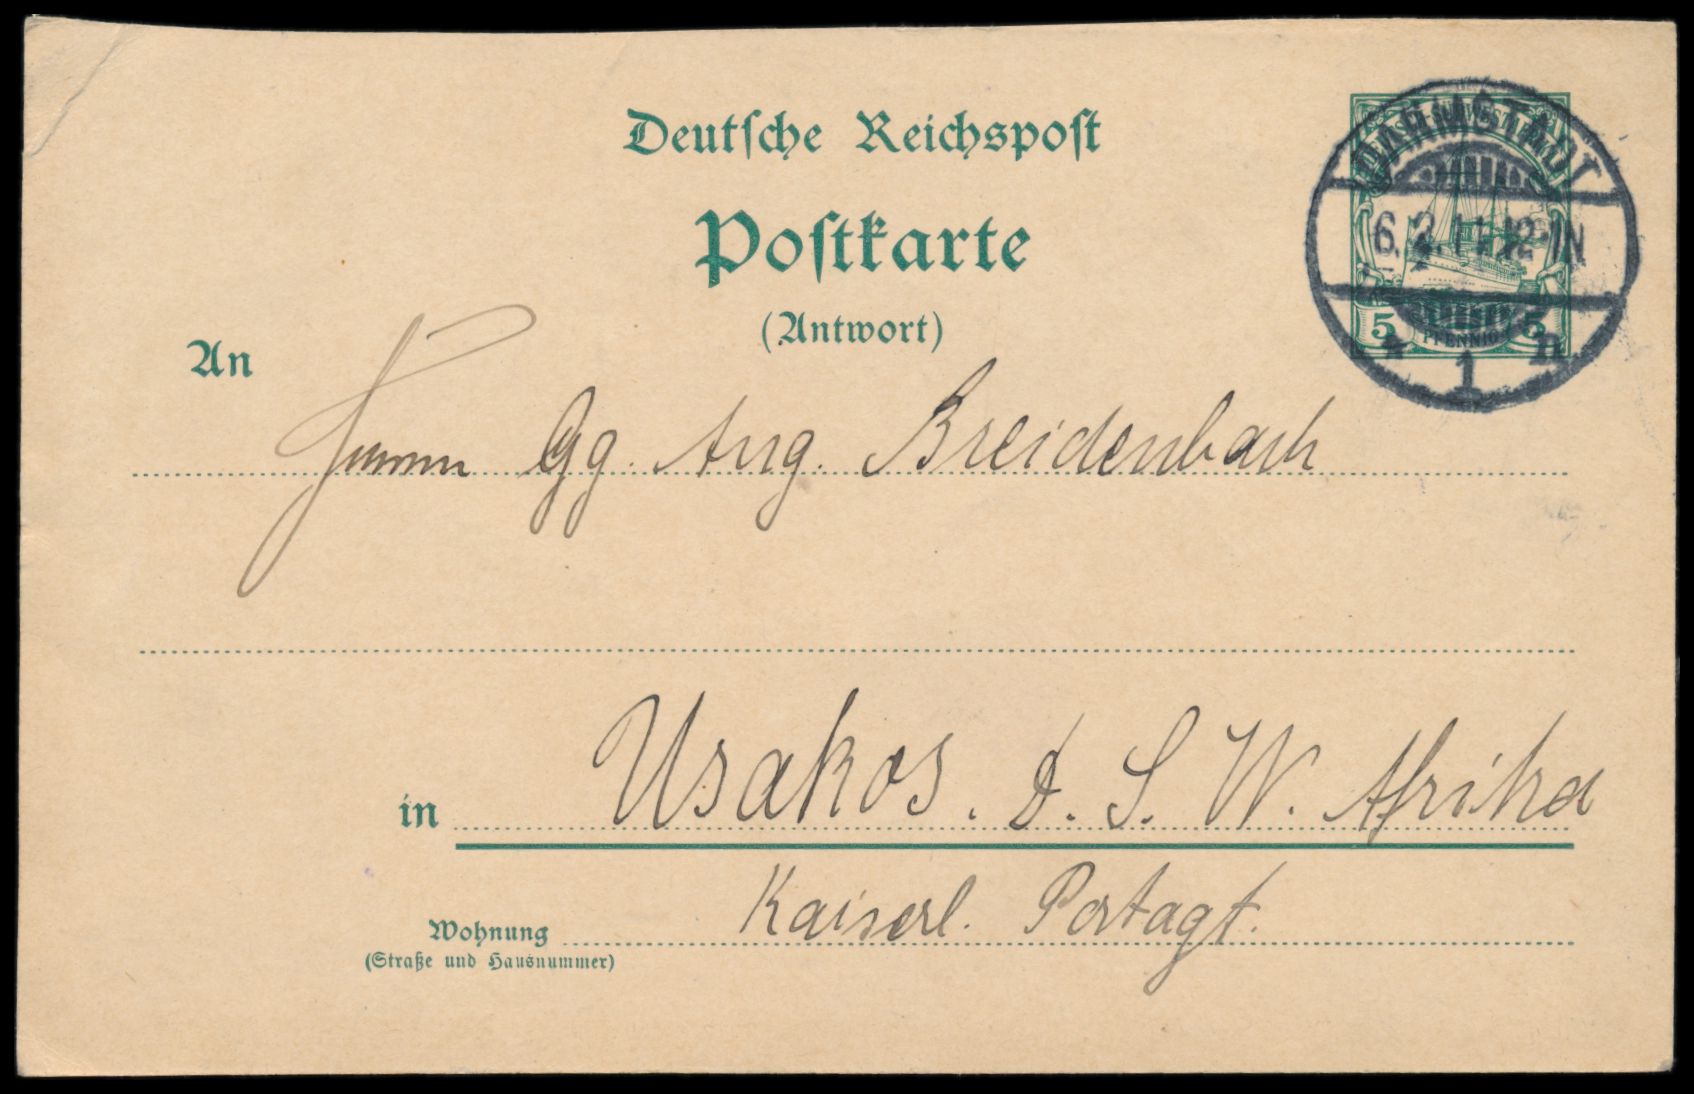 Deutsche Reichspost
Postkarte
(Antwort)
DEUTSCH-SÜDWESTAFRIKA
5 PFENNIG 5
DARMSTADT
6.2.11.12-1N
* 1 n
An
Herrn Gg. Aug. Breidenbach
in Usakos. D. S. W. Afrika
Kaiserl. Postagt.
Wohnung
(Straße und Hausnummer)